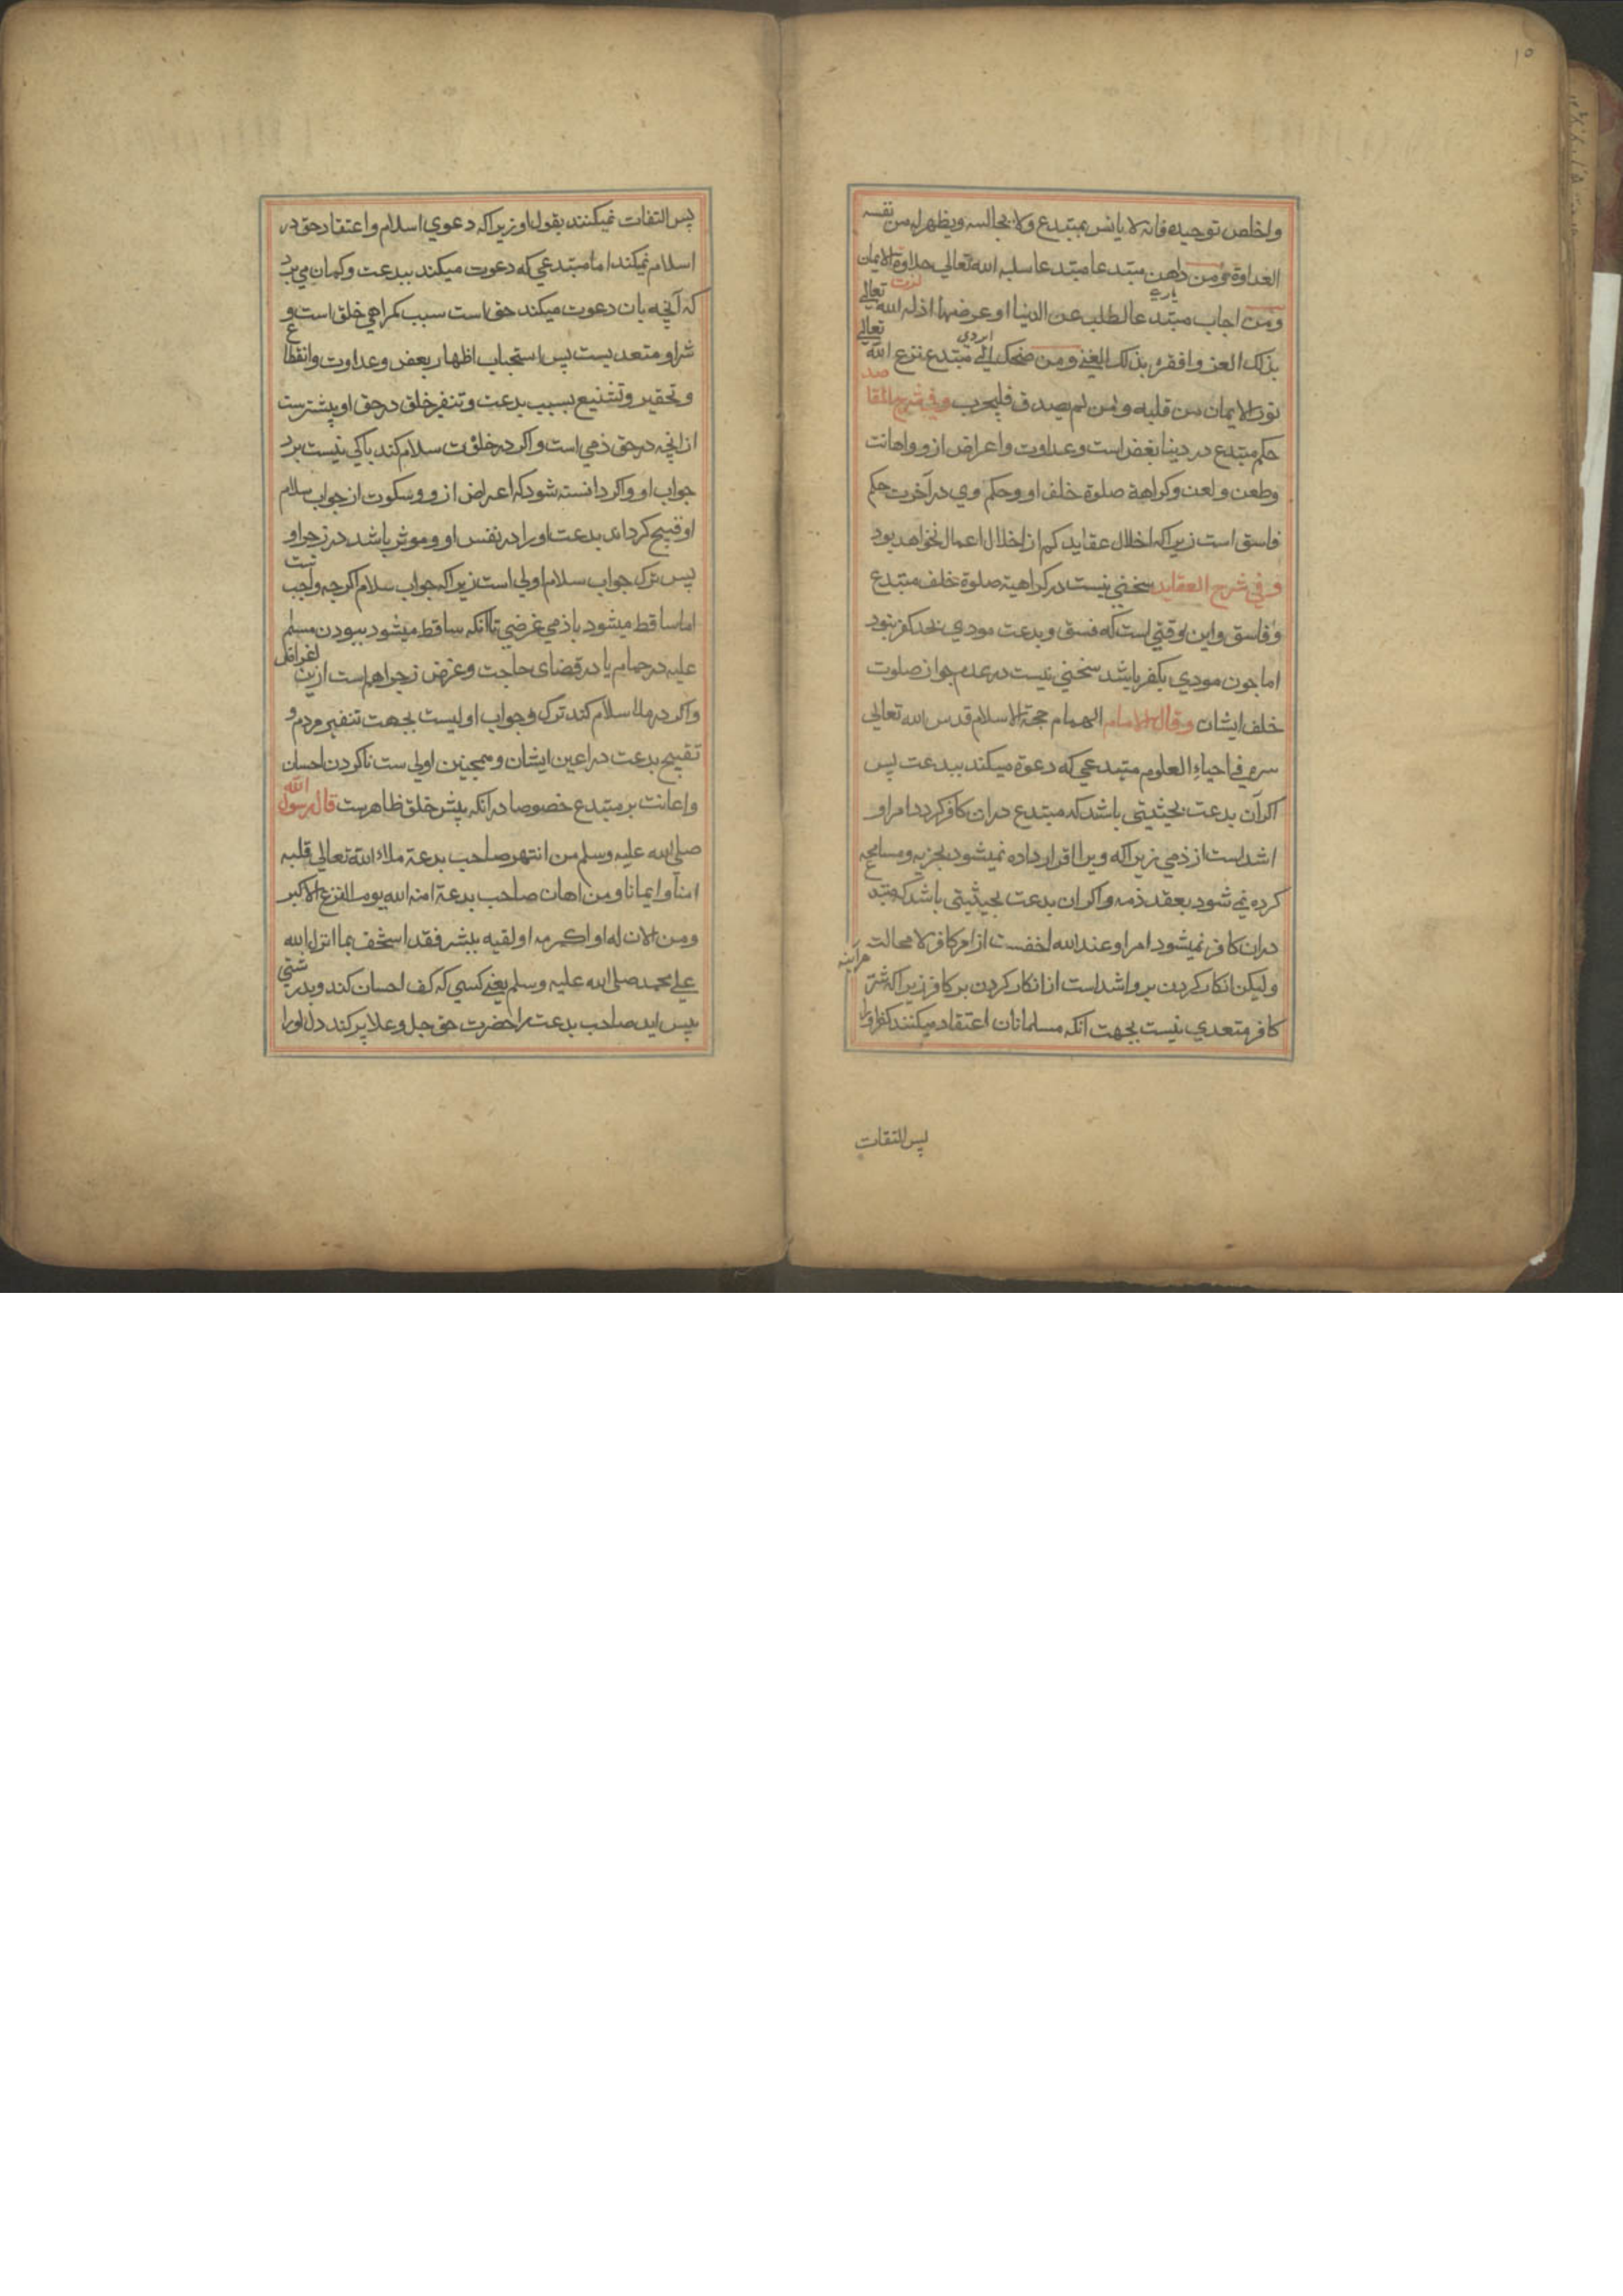 ۱۵
واخلص توحيده فانه لا يانس بمبتدع ولا يجالسه ويظهر له من نفسه
العداوة ومن داهن مبتدعا سلبه الله تعالي حلاوة الايمان
ومن اجاب مبتدعا لطلب عن الدنيا او عرضها اذله الله تعالي
بذلك العز وافقره بذلك الغني ومن ضحك الي مبتدع نزع الله تعالي
نور الايمان من قلبه ومن لم يصدق فليجرب وفي شرح المقاصد
حكم مبتدع در دنيا بغض است وعداوت واعراض ازو واهانت
وطعن ولعن وكراهة صلوة خلف او وحكم وي در آخرت حكم
فاسق است زيراكه اخلال عقايد كم از اخلال اعمال نخواهد بود
و في شرح العقايد سخني نيست در كراهية صلوة خلف مبتدع
وفاسق واين وقتي است كه فسق وبدعت مودي بحد كفر نبود
اما جون مودي بكفر باشد سخني نيست در عدم جواز صلوت
خلف ايشان وقال الامام الهمام حجة الاسلام قدس الله تعالي
سره في احياء العلوم مبتدعي كه دعوة ميكند ببدعت پس
اكر آن بدعت بحيثيتي باشد كه مبتدع دران كافر كردد امر او
اشد است از ذمي زيراكه ويرا اقرار داده نميشود بجزيه ومسامحه
كرده نمي شود بعقد ذمه واكر ان بدعت بحيثيتي باشد كه مبتدع
دران كافر نميشود امر او عند الله اخفست از امر كافر لا محالت هرآينه
وليكن انكار كردن برو اشد است از انكار كردن بر كافر زيراكه شر
كافر متعدي نيست بجهت انكه مسلمانان اعتقاد ميكنند كفر او را
پس التفات
پس التفات نميكنند بقول او زيراكه دعوي اسلام واعتقاد حق در
اسلام نميكند اما مبتدعي كه دعوت ميكند ببدعت وكمان مي برد
كه آنچه بان دعوت ميكند حق است سبب كمراهي خلق است و
شر او متعديست پس استحباب اظهار بغض وعداوت وانقطاع
وتحقير وتشنيع بسبب بدعت وتنفر خلق در حق او بيشترست
ازانچه در حق ذمي است واكر در خلوت سلام كند باكي نيست برد
جواب او واكر دانسته شود كه اعراض ازو وسكوت از جواب سلام
او قبيح كرداند بدعت او را در نفس او وموثر باشد در زجر او
پس ترك جواب سلام اولي است زيراكه جواب سلام اكرچه واجب ست
اما ساقط ميشود باذمي غرضي تا انكه ساقط ميشود ببودن مسلم
عليه در حمام يا در قضاى حاجت وغرض زجر اهم است ازين اغراض
واكر در ملا سلام كند ترك وجواب اوليست بجهت تنفير مردم و
تقبيح بدعت در اعين ايشان وهمچنين اولي ست ناكردن احسان
واعانت بر مبتدع خصوصا در انكه پيش خلق ظاهرست قال رسول الله
صلي الله عليه وسلم من انتهر صاحب بدعة ملاء الله تعالي قلبه
امنا وايمانا ومن اهان صاحب بدعة امنه الله يوم الفزع الاكبر
ومن الان له او اكرمه او لقيه ببشر فقد استخف بما انزل الله
علي محمد صلي الله عليه وسلم يعني كسي كه كف احسان كند وبدرشتي
پيس ايد صاحب بدعت را حضرت حق جل وعلا پر كند دل او را